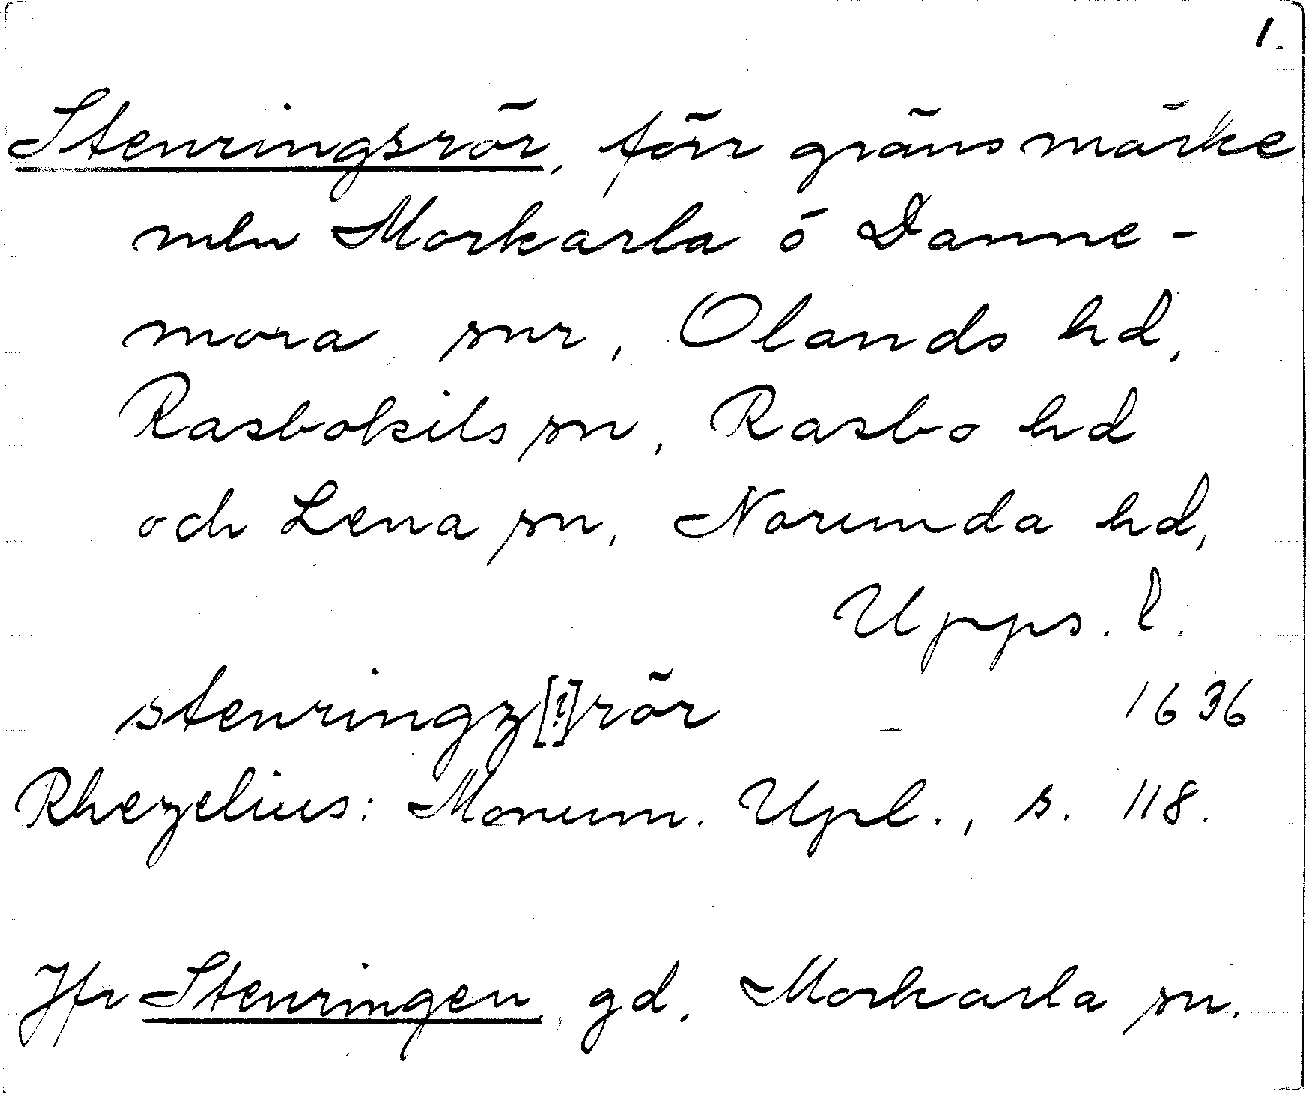 1.
Stenringsrör, förr gränsmärke
mln Morkarla o Danne-
mora snr, Olands hd,
Rasbokils sn, Rasbo hd
och Lena sn, Norunda hd,
Upps. l.
stenringz[!]rör 1636
Rhezelius: Monum. Upl., s. 118.
Jfr Stenringen, gd, Morkarla sn.